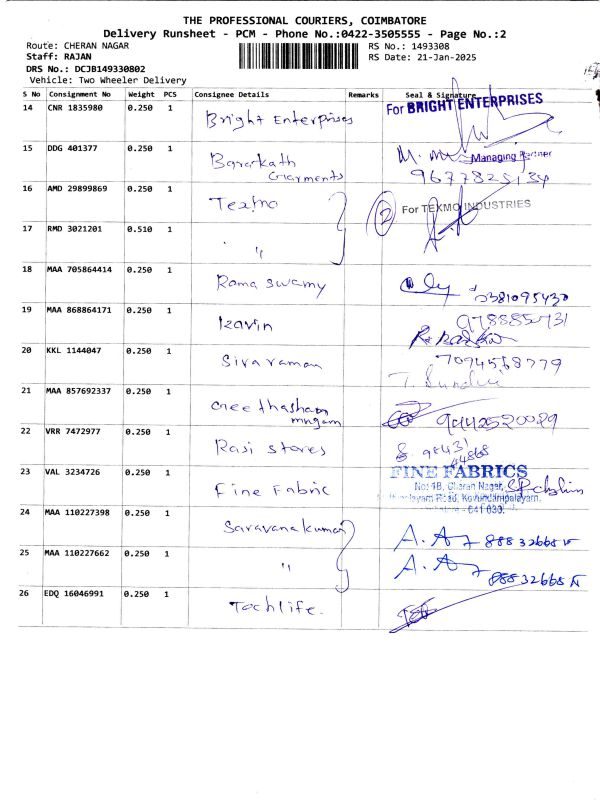 THE PROFESSIONAL COURIERS, COIMBATORE
Delivery Runsheet - PCM - Phone No.:0422-3505555 - Page No.:2
Route: CHERAN NAGAR RS No.: 1493308
Staff: RAJAN RS Date: 21-Jan-2025
DRS No.: DCJB149330802
Vehicle: Two Wheeler Delivery
S No Consignment No Weight PCS Consignee Details Remarks Seal & Signature
14 CNR 1835980 0.250 1 Bright Enterprises For BRIGHT ENTERPRISES
Managing Partner
15 DDG 401377 0.250 1 Barakath Garments
16 AMD 29899869 0.250 1 Texmo 2 For TEXMO INDUSTRIES
17 RMD 3021201 0.510 1 "
18 MAA 705864414 0.250 1 Rama Swamy
19 MAA 868864171 0.250 1
20 KKL 1144047 0.250 1 Sivaraman 7094568779
21 MAA 857692337 0.250 1 9442520029
22 VRR 7472977 0.250 1 Rasi Stores
23 VAL 3234726 0.250 1 Fine Fabric FINE FABRICS
24 MAA 110227398 0.250 1 Saravanakumar
25 MAA 110227662 0.250 1 "
26 EDQ 16046991 0.250 1 Techlife.